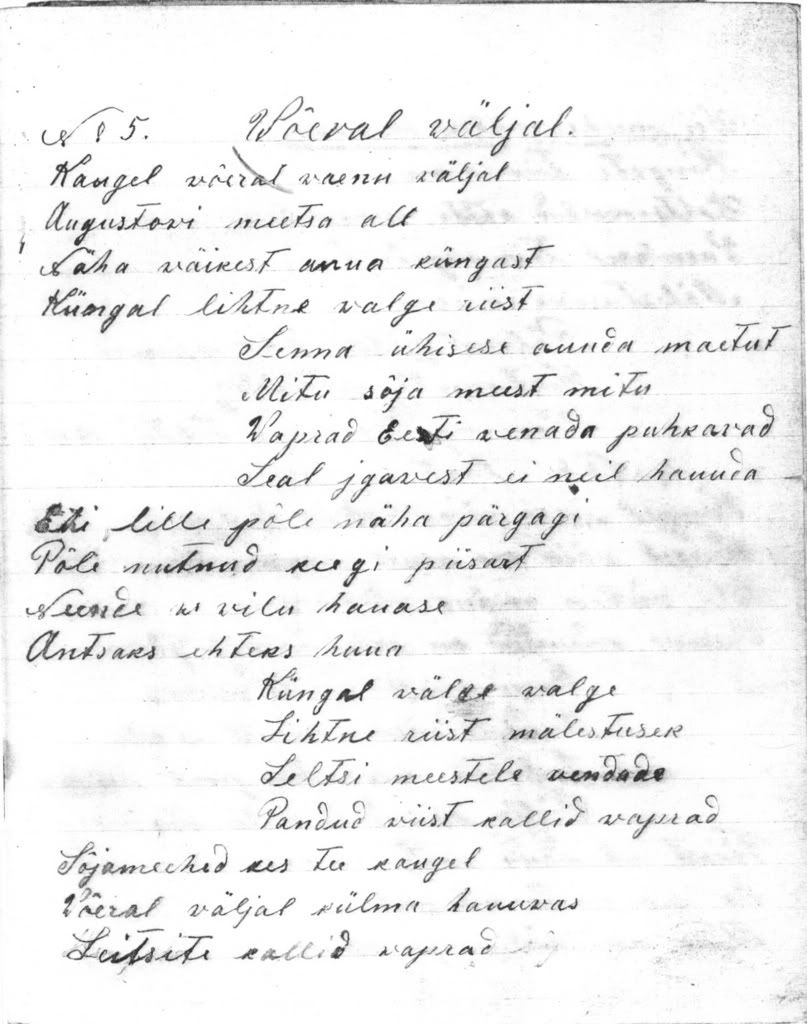 № 5. Võeral väljal.
Kaugel võeral vaenu väljal
Augustovi meetsa all
Näha väikest anua küngast
Küngal lihtne valge riist
Senna ühisese auuda maetut
Mitu sõja meest mitu
Vaprad Eesti venada puhkavad
Seal jgavest ei neil hauuda
Ehi lille põle näha pärgagi
Põle nutnud keegi piisart
Neende vilu hauase
Antsaks ehteks huua
Küngal valge
Lihtne riist mälestusek
Seltsi meestele vendade
Pandud riist kallid vaprad
Sõjameched kes tee kaugel
Võeral väljal külma hauuvas
Leitsite kallid vaprad